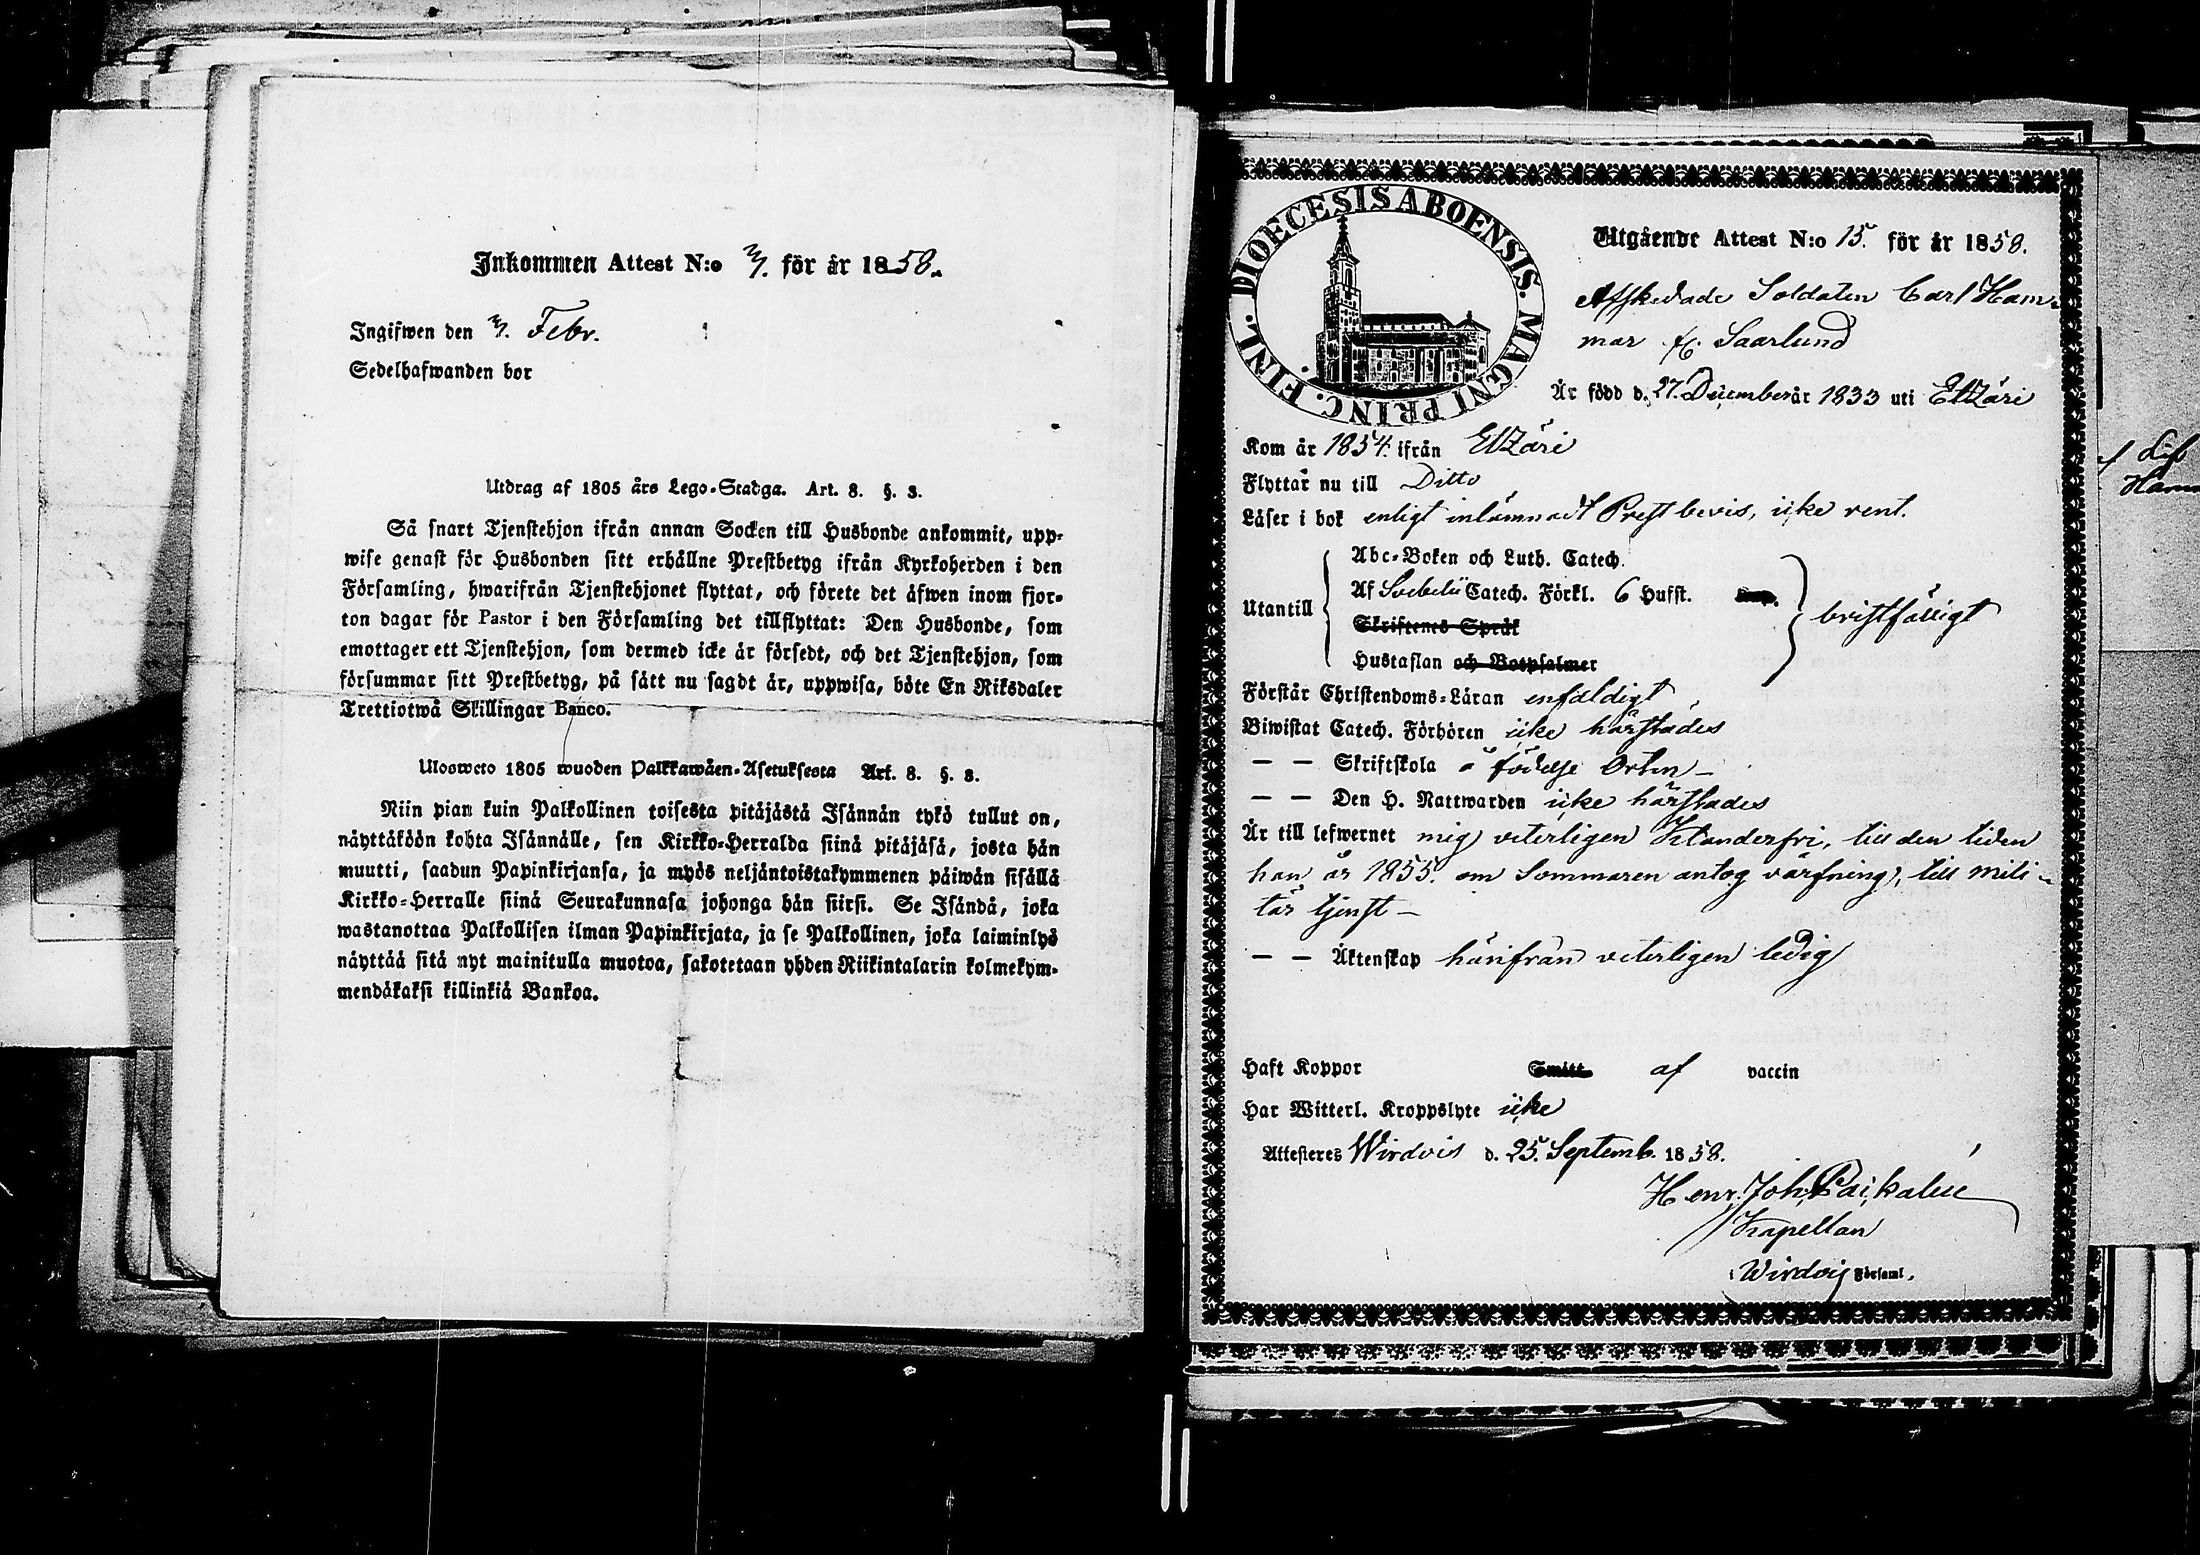 Inkommen Attest N:o 7. för år 1858.
Ingifwen den 7. Febr.
Sedelhafwanden bor
Utdrag af 1805 års Lego-Stadga. Art. 8. §. 3.
Så snart Tjenstehjon ifrån annan Socken till Husbonde ankommit, upp-
wise genast för Husbonden sitt erhållne Prestbetyg ifrån Kyrkoherden i den
Församling, hwarifrån Tjenstehjonet flyttat, och förete det äfwen inom fjor-
ton dagar för Pastor i den Församling det tillflyttat: Den Husbonde, som
emottager ett Tjenstehjon, som dermed icke är försedt, och det Tjenstehjon, som
försummar sitt Prestbetyg, på sätt nu sagdt är, uppwisa, böte En Riksdaler
Trettiotwå Skillingar Banco.
Ulosweto 1805 wuoden Palkkawäen-Asetuksesta Art. 8. §. 3.
Niin pian kuin Palkollinen toisesta pitäjästä Isännän tykö tullut on,
näyttäköön kohta Isännälle, sen Kirkko-Herralda siinä pitäjäsä, josta hän
muutti, saadun Papinkirjansa, ja myös neljäntoistakymmenen päiwän sisällä
Kirkko-Herralle siinä Seurakunnasa johonga hän siirsi. Se Isändä, joka
wastanottaa Palkollisen ilman Papinkirjata, ja se Palkollinen, joka laiminlyö
näyttää sitä nyt mainitulla muotoa, sakotetaan yhden Riikintalarin kolmekym-
mendäkaksi killinkiä Bankoa.
DIOECESIS ABOENSIS. MAGNI PRINC. FINL.
Utgående Attest N:o 15. för år 1858.
Afskedade Soldaten Carl Ham-
mar f. Saarlund
Är född d. 27. December år 1833 uti Etzäri
Kom år 1854. ifrån Etzäri
Flyttar nu till Ditto
Läser i bok enligt inlämnadt Prestbevis, icke rent.
Abc-Boken och Luth. Catech.
Utantill Af Svebelii Catech. Förkl. 6 Hufst. bristfälligt
Skriftenes Språk
Hustaflan och Botpsalmer
Förstår Christendoms-Läran enfaldigt
Biwistat Catech. Förhören icke härstädes
— — Skriftskola å födelse Orten —
— — Den H. Nattwarden icke härstädes
Är till lefwernet mig veterligen Klanderfri, till den tiden
han år 1855. om Sommaren antog värfning, till mili-
tär tjenst —
— — Äktenskap härifrån veterligen ledig
Haft Koppor Smitt af vaccin
Har Witterl. Kroppslyte icke
Attesteres Wirdois d. 25. Septemb. 1858.
Henr. Joh.
Kapellan
i Wirdois Församl.